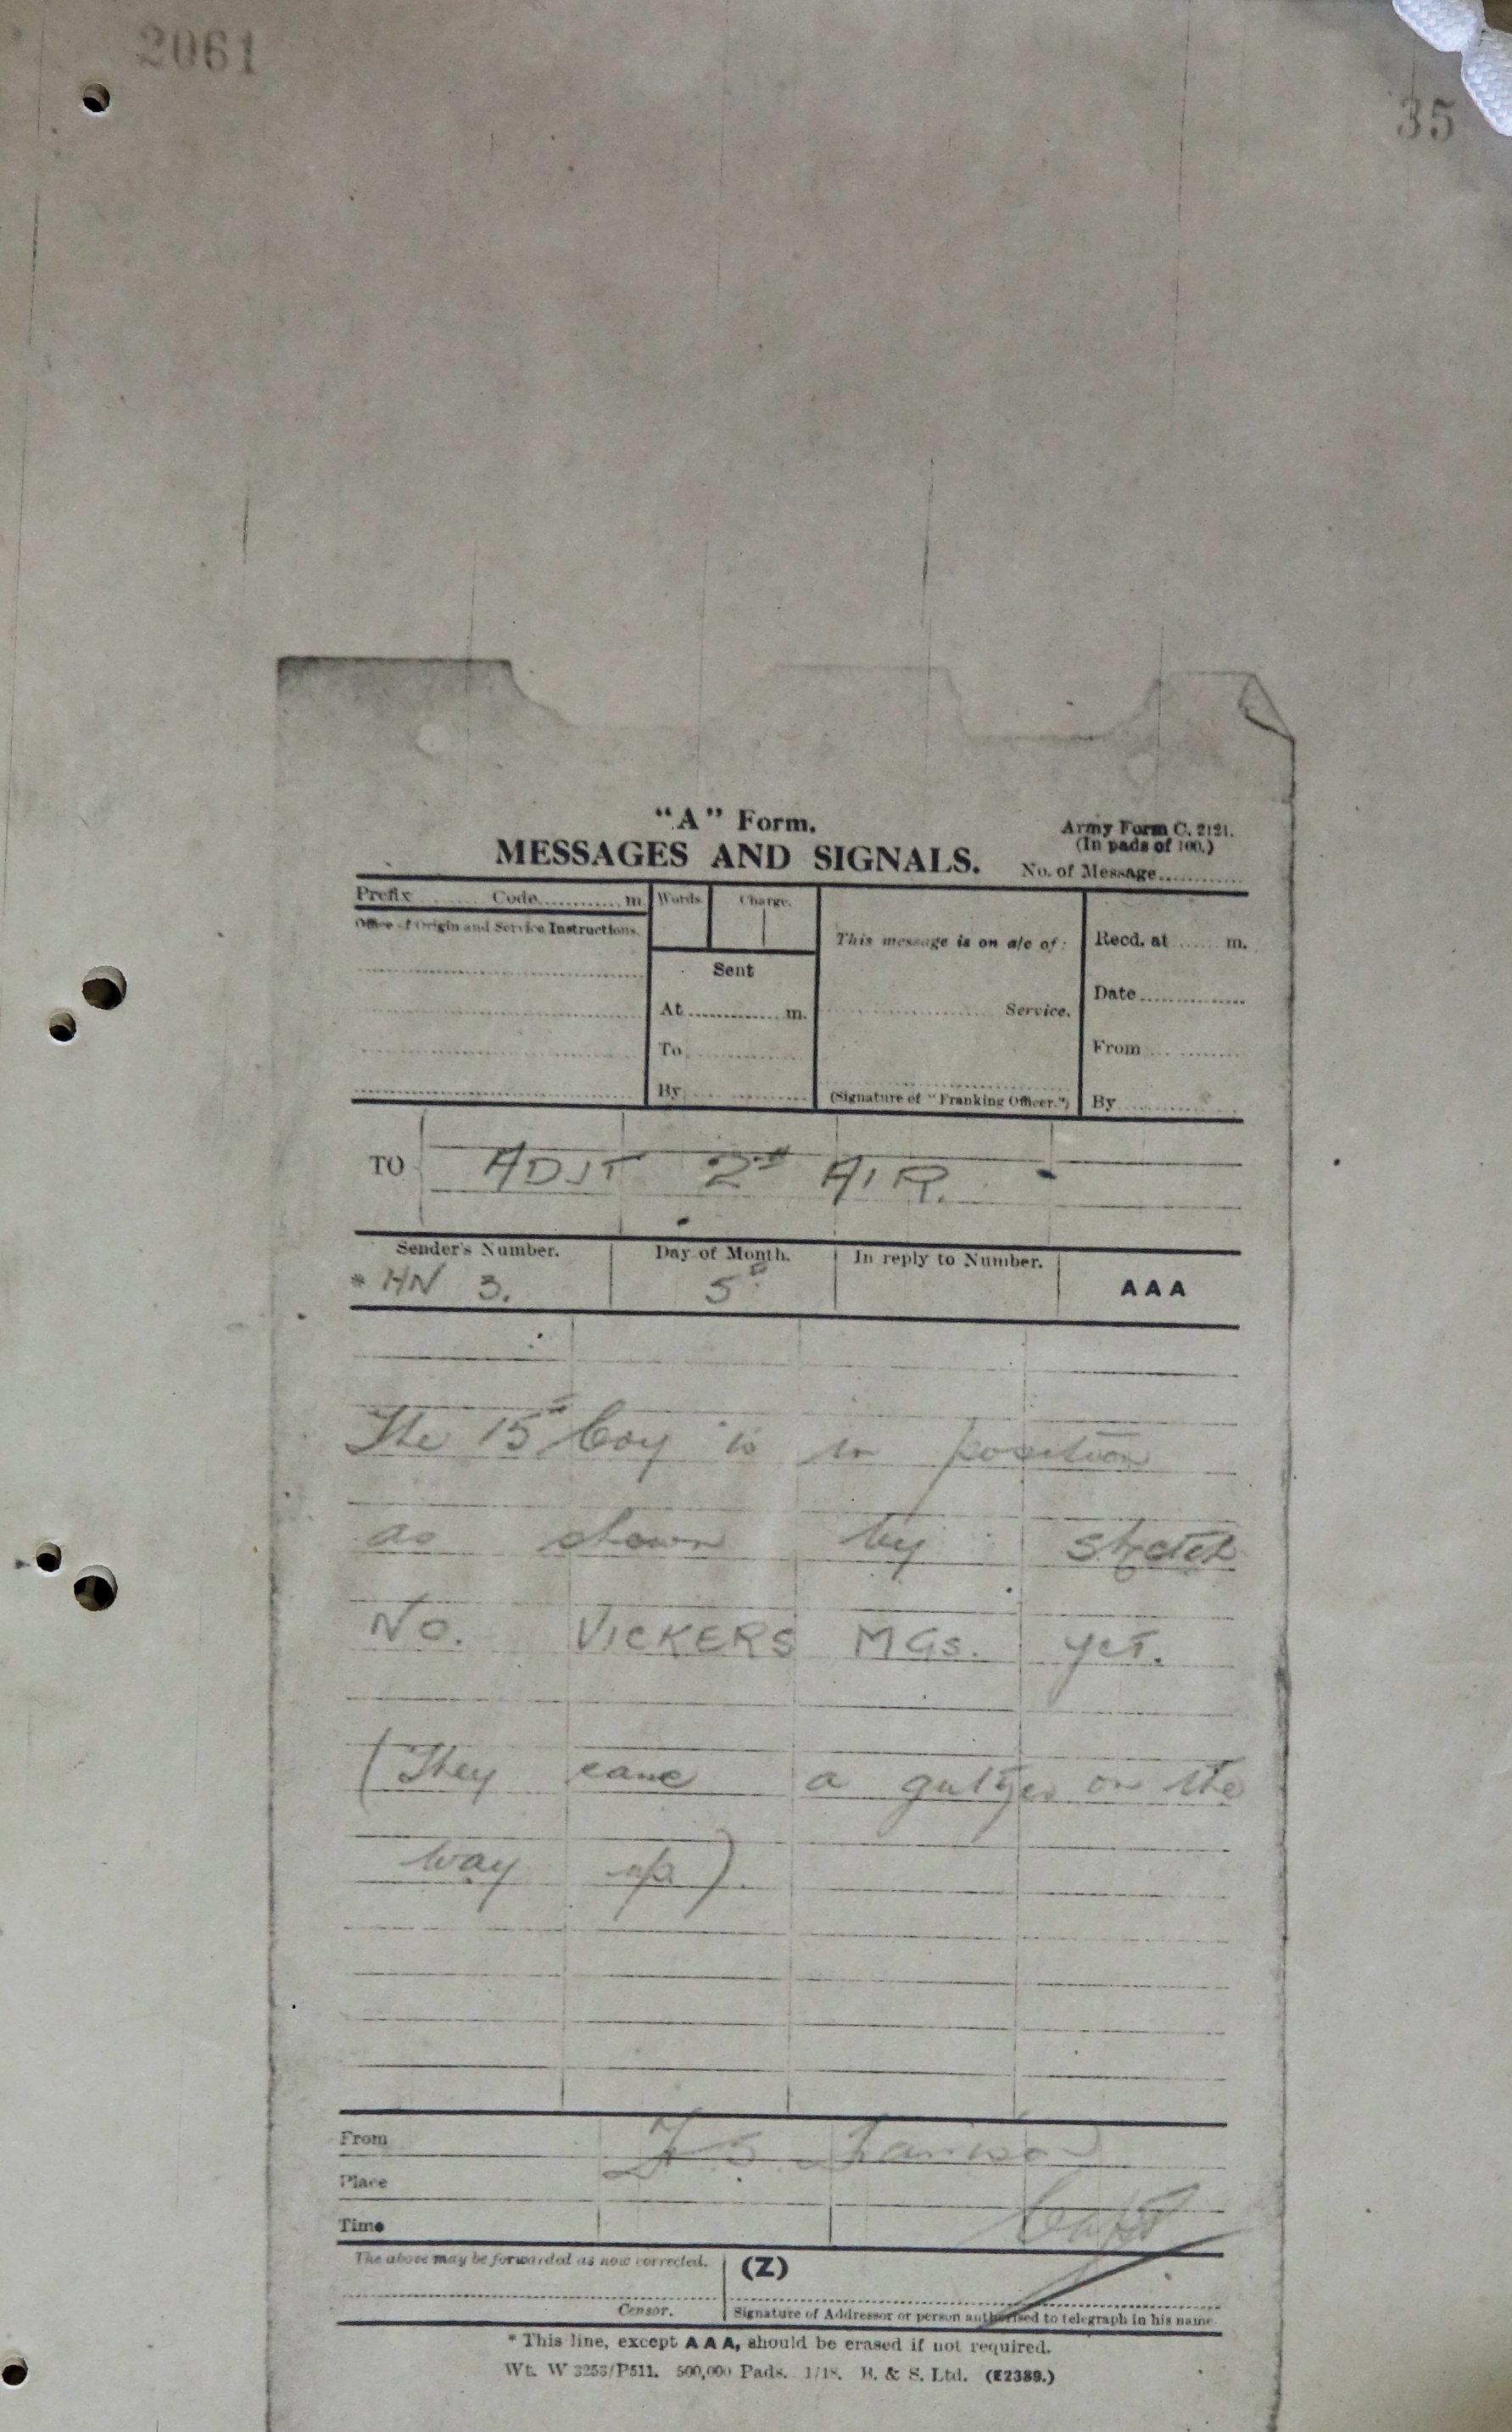 2061
35
"A" Form.
Army Form C. 2121.
(In pads of 100.)
MESSAGES AND SIGNALS.
No. of Message............
Prefix ........ Code............ m.
Words.
Charge.
Office of Origin and Service Instructions.
This message is on a/c of:
Recd. at ...... m.
Sent
Date...............
At ............. m.
................ Service.
To ..............
From .............
By ..............
(Signature of "Franking Officer.")
By ..............
TO ADJT 2nd AIR.
Sender's Number.
Day of Month.
In reply to Number.
* HN 3.
5th
AAA
The 15th Coy is in position
as shown by sketch
No. VICKERS MGs. yet.
(They came a gutzer on the
way up).
From
Place
Capt
Time
The above may be forwarded as now corrected.
(Z)
Censor.
Signature of Addressor or person authorised to telegraph in his name.
* This line, except AAA, should be erased if not required.
Wt. W 3253/P511. 500,000 Pads. 1/18. B. & S. Ltd. (E2389.)